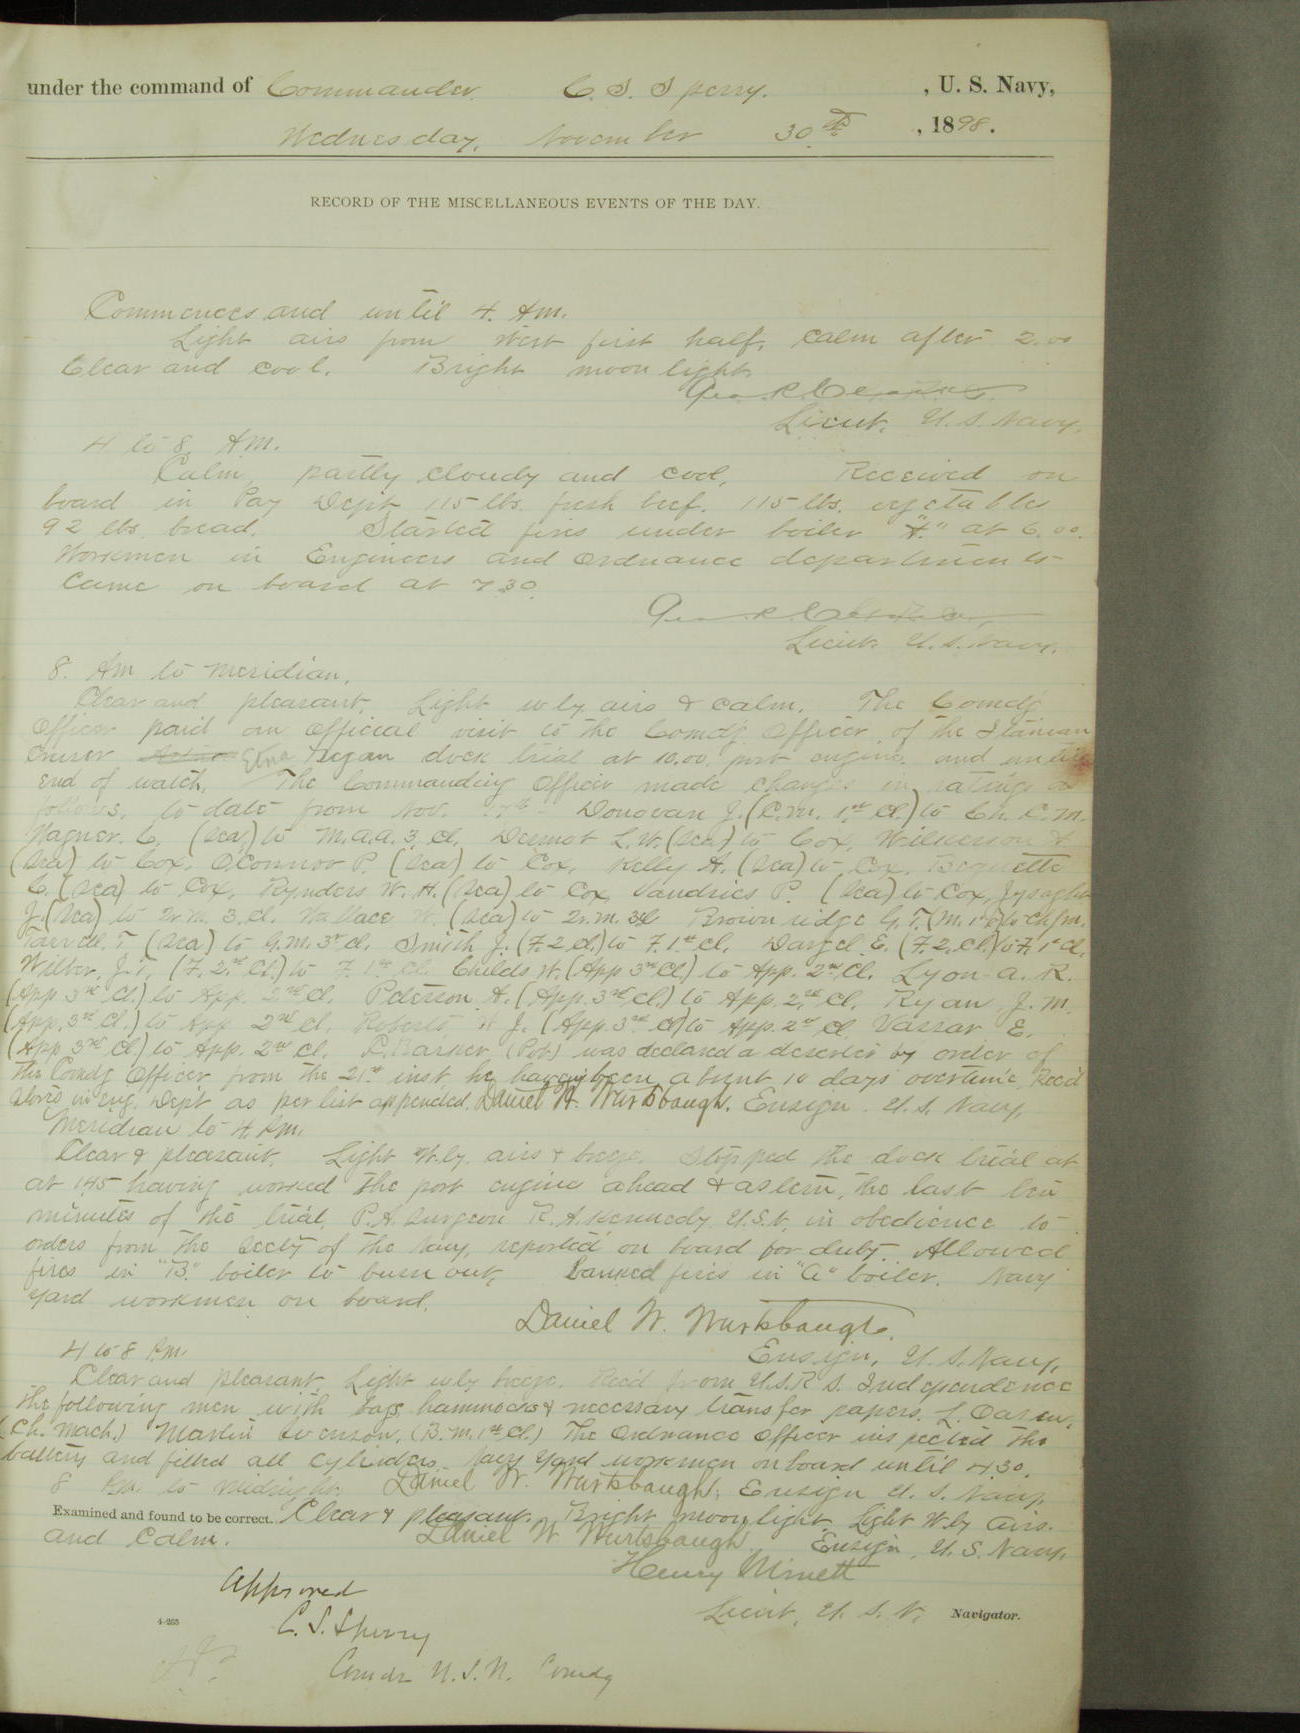 under the command of Commander C. S. Sperry. , U. S. Navy,
Wednesday, November 30th , 1898.
RECORD OF THE MISCELLANEOUS EVENTS OF THE DAY.
Commences and until 4. Am.
Light airs from West first half, calm after 2.00
Clear and cool. Bright moonlight
Lieut. U. S. Navy.
4 to 8 Am.
Calm, partly cloudy and cool. Received on
board in Pay Dept 115 lbs. fresh beef. 115 lbs. vegetables
92 lbs. bread. Started fires under boiler "A." at 6.00.
Workmen in Engineers and Ordnance departments
came on board at 7.30.
Lieut. U. S. Navy.
8. Am to Meridian.
Clear and pleasant. Light wly airs & calm. The Comdg
Officer paid an official visit to the Comdg Officer of the Italian
Cruiser Etna Began dock trial at 10.00. port engine. and until
end of watch. The Commanding Officer made changes in ratings as
follows, to date from Nov. Donovan J. (C.M. 1st Cl.) to Ch. C. M.
Wagner. C. (Sea) to M.a.a. 3. Cl. Dermot L. W. (Sea) to Cox, Wilkerson
(Sea) to Cox. OConnor P. (Sea) to Cox, Kelly H. (Sea) to Cox. Bequette
C. (Sea) to Cox. Rynders W. H. (Sea) to Cox, Vandries P. (Sea) to Cox, Lysaght
J. (Sea) to Qr. M. 3. Cl. Wallace W. (Sea) to Qr. M. 3Cl Brownridge G. T. (M. 1st Cl) to Ch. M.
Farrell. T (Sea) to G.M. 3rd Cl. Smith J. (F. 2 Cl.) to F. 1st Cl. E. (F. 2. Cl.) to F. 1st Cl.
Wilber, J. T. (F. 2nd Cl.) to F. 1st Cl. Childs W. (App 3rd Cl.) to App. 2nd Cl. Lyon A. R.
(App 3rd Cl.) to App. 2nd Cl. Peterson A. (App. 3rd Cl.) to App. 2nd Cl. Ryan J. M.
(App. 3rd Cl.) to App 2nd Cl. Roberts H J. (App. 3rd Cl) to App. 2nd Cl Vassar E.
(App 3rd Cl.) to App. 2nd Cl. was declared a deserter by order of
the Comdg Officer from the 21st inst, he having been absent 10 days overtime, Rec'd
stores in eng. Dept as per list appended. Daniel W. Wurtsbaugh. Ensign U. S. Navy,
Meridian to 4 P.M.
Clear & pleasant. Light W.ly. airs & breeze. Stopped the dock trial at
at 1.45 having worked the port engine ahead & astern, the last ten
minutes of the trial. P. A. Surgeon R. A. Kennedy U.S.N. in obedience to
orders from the Secty of the Navy, reported on board for duty. Allowed
fires in "B." boiler to burn out, banked fires in "A" boiler. Navy
yard workmen on board.
Daniel W. Wurtsbaugh.
Ensign, U. S. Navy.
4 to 8 P.M.
Clear and pleasant Light wly breeze. Rec'd from U.S.R.S. Independence
the following men with bags, hammocks & necessary transfer papers. L.
(Ch. Mach.) Martin Swenson, (B.M. 1st Cl.) The Ordnance Officer inspected the
battery and filled all cylinders. Navy Yard workmen on board until 4.30.
8 P.M. to Midnight. Daniel W. Wurtsbaugh, Ensign U. S. Navy.
Examined and found to be correct. Clear & pleasant. Bright moonlight. Light W.ly airs.
and calm. Daniel W Wurtsbaugh. Ensign, U. S. Navy.
Henry Minett
Approved
Lieut, U. S. N. Navigator.
4-265
C. S. Sperry
Comdr U. S. N. Comdg